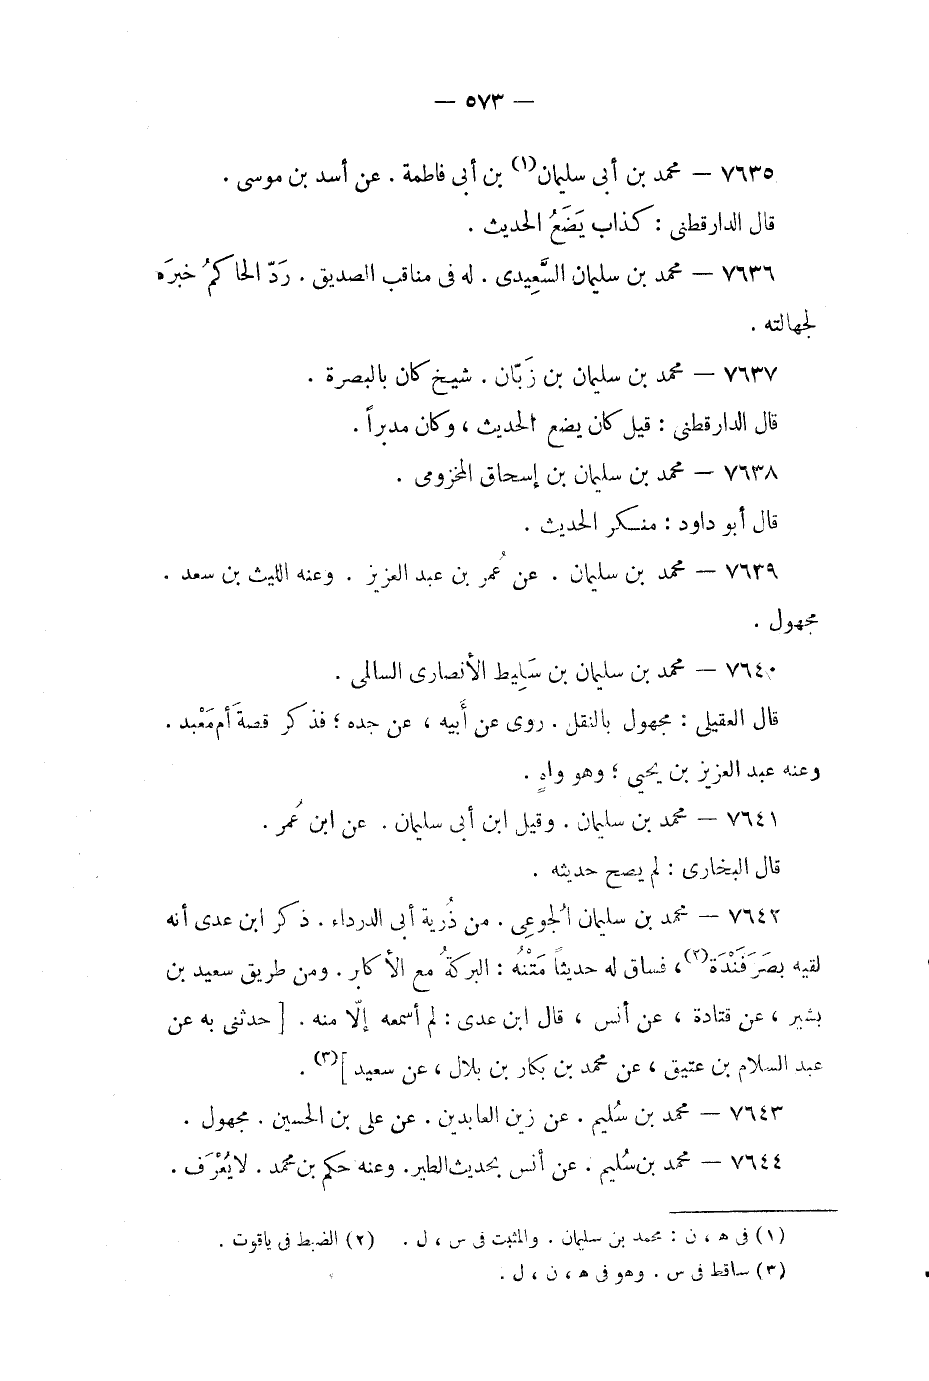 — ٥٧٣ —
٧٦٣٥ — محمد بن أبى سليمان(١) بن أبى فاطمة . عن أسد بن موسى .
قال الدارقطنى : كذاب يَضَعُ الحديث .
٧٦٣٦ — محمد بن سليمان السَّعِيدى . له فى مناقب الصديق . رَدّ الحاكمُ خبرَه
لجهالته .
٧٦٣٧ — محمد بن سليمان بن زَبّان . شيخ كان بالبصرة .
قال الدارقطنى : قيل كان يضع الحديث ، وكان مدبراً .
٧٦٣٨ — محمد بن سليمان بن إسحاق المخزومى .
قال أبو داود : منكر الحديث .
٧٦٣٩ — محمد بن سليمان . عن عُمر بن عبد العزيز . وعنه الليث بن سعد .
مجهول .
٧٦٤٠ — محمد بن سليمان بن سَلِيط الأنصارى السالمى .
قال العقيلى : مجهول بالنقل . روى عن أَبيه ، عن جده ؛ فذكر قصةَ أم مَعْبد .
وعنه عبد العزيز بن يحيى ؛ وهو واهٍ .
٧٦٤١ — محمد بن سليمان . وقيل ابن أبى سليمان . عن ابن عُمر .
قال البخارى : لم يصح حديثه .
٧٦٤٢ — محمد بن سليمان الُجوعِى . من ذُرية أبى الدرداء . ذكر ابن عدى أنه
لقيه بصَرَفَنْدَة(٢)، فساق له حديثاً مَتْنُه : البركةُ مع الأكابر . ومن طريق سعيد بن
بشير ، عن قتادة ، عن أنس ، قال ابن عدى : لم أسمعه إلّا منه . [ حدثنى به عن
عبد السلام بن عتيق ، عن محمد بن بكار بن بلال ، عن سعيد ](٣) .
٧٦٤٣ — محمد بن سُليم . عن زين العابدين . عن على بن الحسين . مجهول .
٧٦٤٤ — محمد بن سُليم . عن أنس بحديث الطير. وعنه حكم بن محمد . لا يُعْرَف .
(١) فى ه ، ن : محمد بن سليمان . والمثبت فى س ، ل . (٢) الضبط فى ياقوت .
(٣) ساقط فى س . وهو فى ه ، ن ، ل .